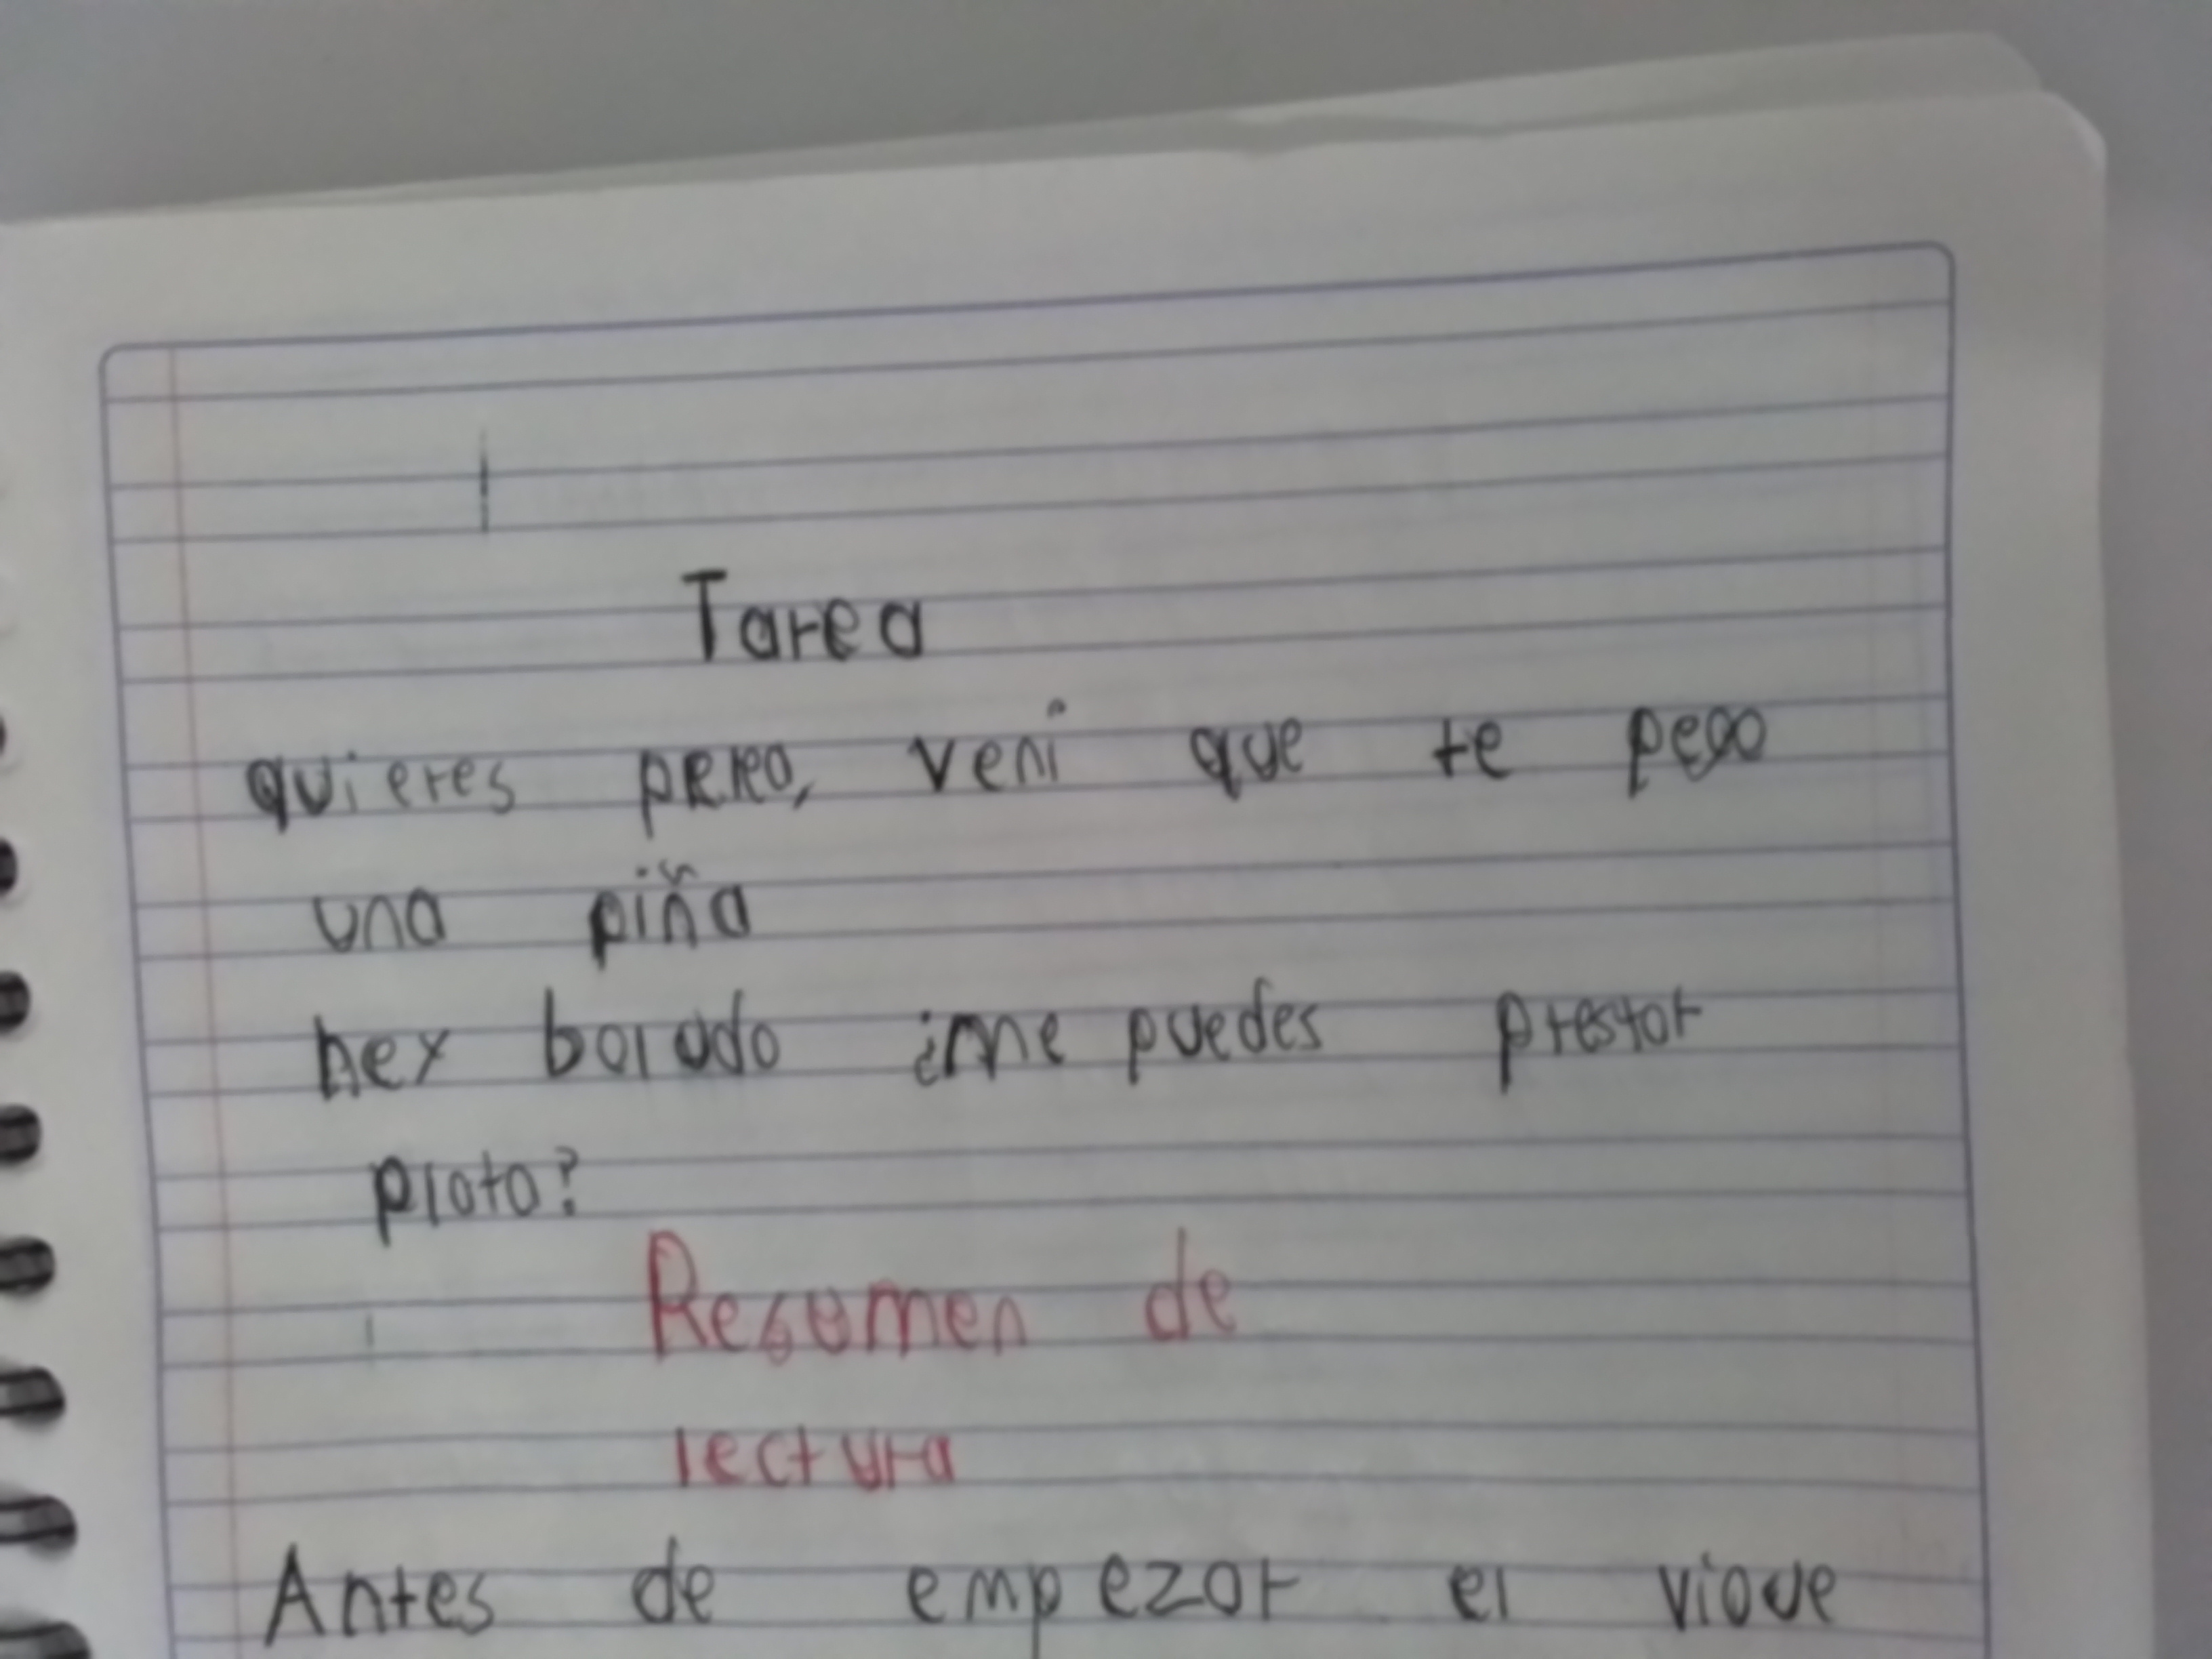 Tarea
quieres pelea, veni que te pego
una piña
hey boludo ¿me puedes prestar
plata?
Resumen de
lectura
Antes de empezar el viaje